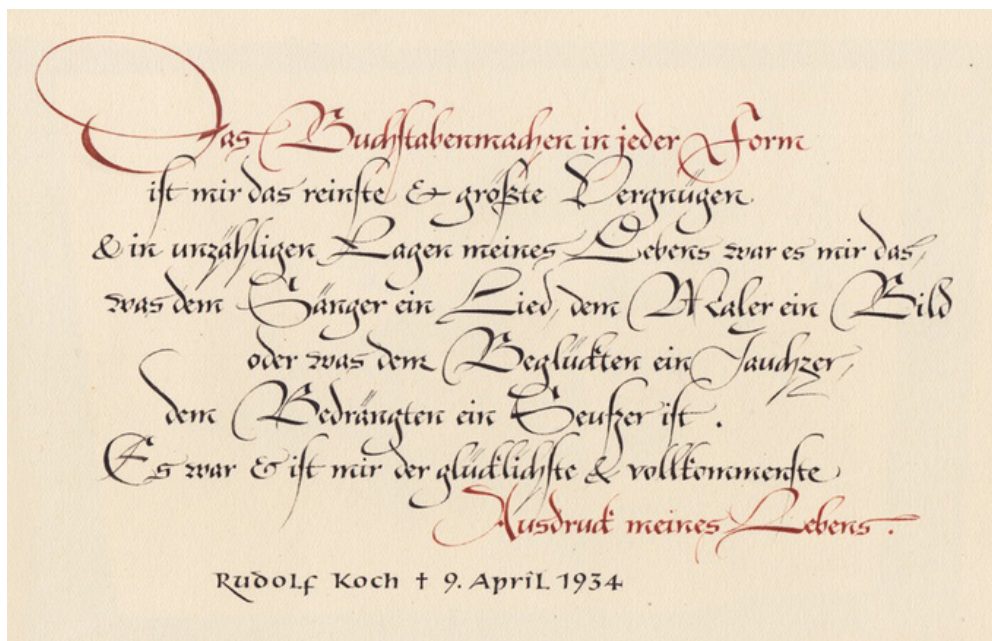 Das Buchstabenmachen in jeder Form
ist mir das reinste & größte Vergnügen
& in unzähligen Lagen meines Lebens war es mir das,
was dem Sänger ein Lied, dem Maler ein Bild
oder was dem Beglückten ein Jauchzer,
dem Bedrängten ein Seufzer ist.
Es war & ist mir der glücklichste & vollkommenste
Ausdruck meines Lebens.
Rudolf Koch † 9. April 1934